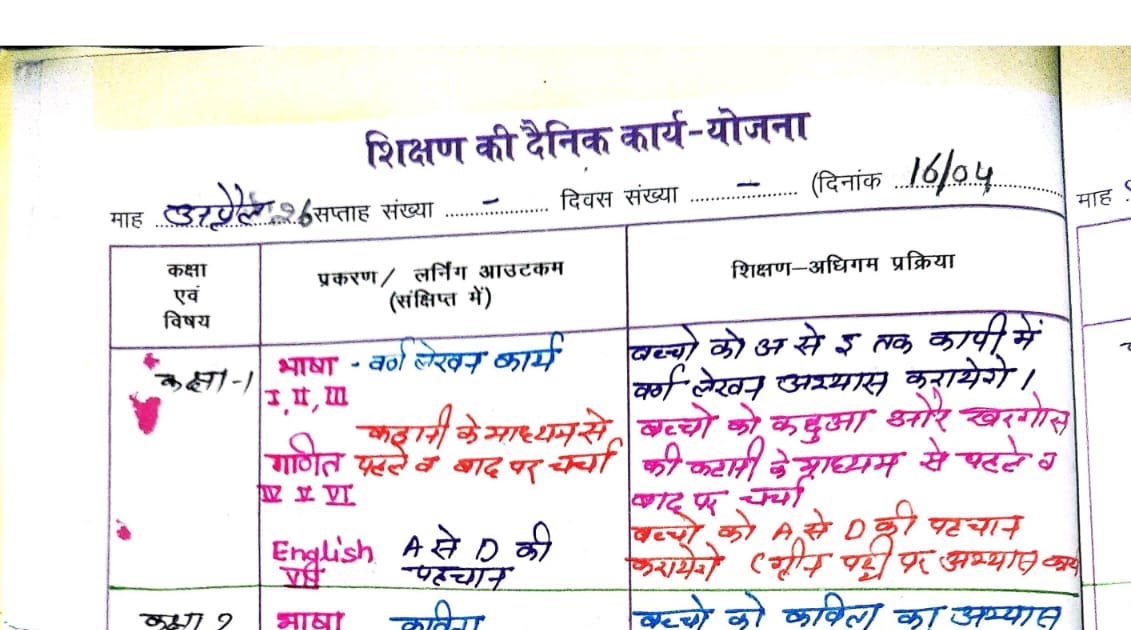 शिक्षण की दैनिक कार्य-योजना
माह अप्रैल 26 सप्ताह संख्या - दिवस संख्या - (दिनांक 16/04
माह
कक्षा एवं विषय
प्रकरण / लर्निंग आउटकम (संक्षिप्त में)
शिक्षण-अधिगम प्रक्रिया
कक्षा-1
भाषा - वर्ण लेखन कार्य
I, II, III
कहानी के माध्यम से
गणित पहले व बाद पर चर्चा
IV V VI
English A से D की
VII पहचान
बच्चो को अ से इ तक कापी में
वर्ण लेखन अभ्यास करायेगे।
बच्चो को कछुआ और खरगोस
की कहानी के माध्यम से पहले व
बाद पर चर्चा
बच्चो को A से D की पहचान
करायेगे (ग्रीन पट्टी पर अभ्यास कार्य
कक्षा 2
भाषा कविता
बच्चो को कविता का अभ्यास